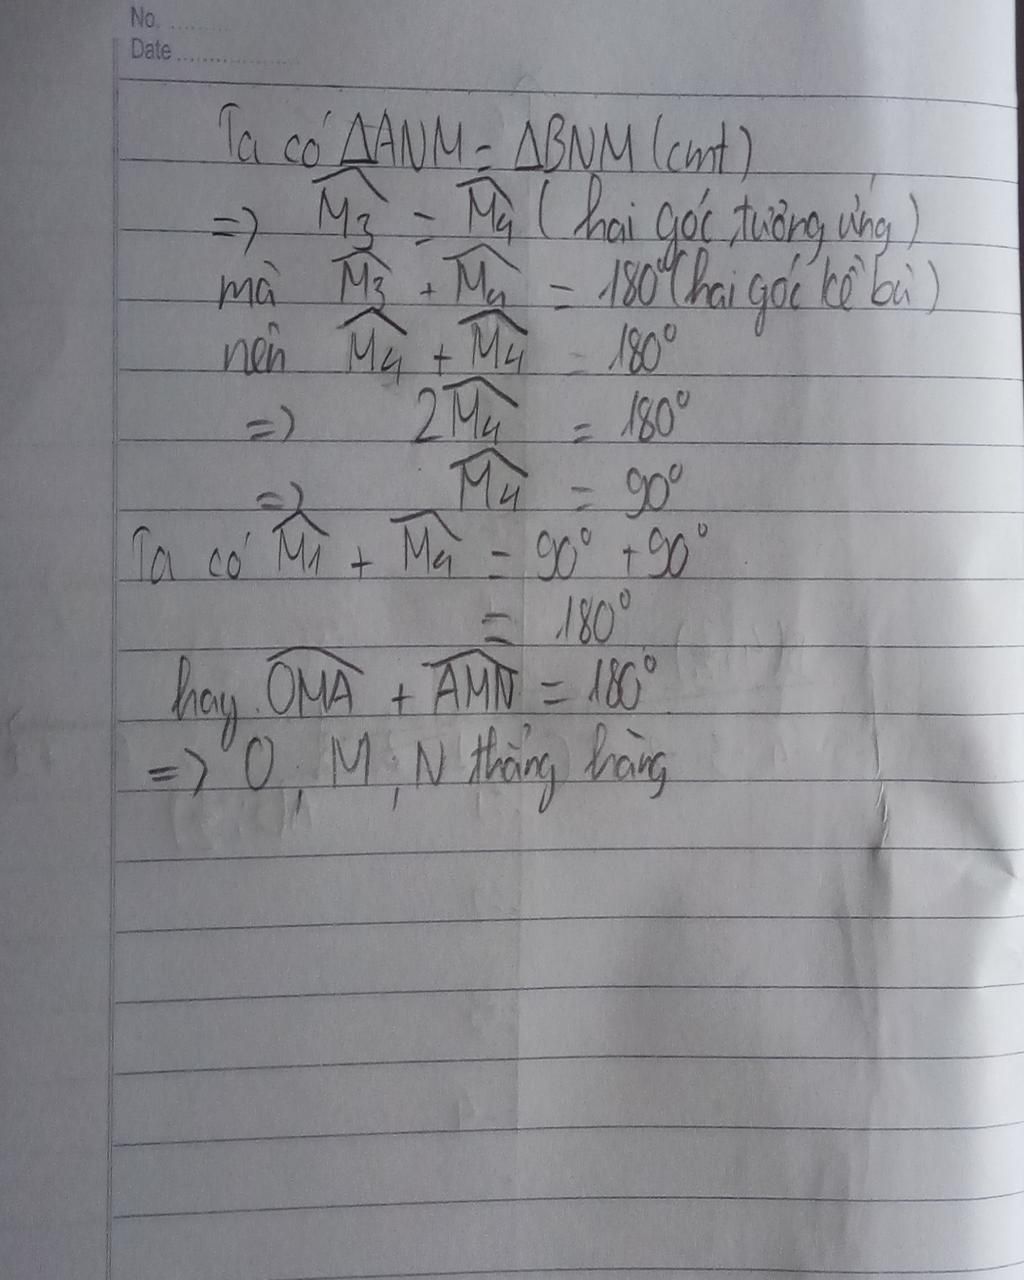 No. ........
Date ..................
Ta có ΔANM = ΔBNM (cmt)
=> M̂3 = M̂4 (hai góc tương ứng)
mà M̂3 + M̂4 = 180° (hai góc kề bù)
nên M̂4 + M̂4 = 180°
=> 2M̂4 = 180°
=> M̂4 = 90°
Ta có M̂1 + M̂4 = 90° + 90°
= 180°
hay OMÂ + AMN̂ = 180°
=> O, M, N thẳng hàng